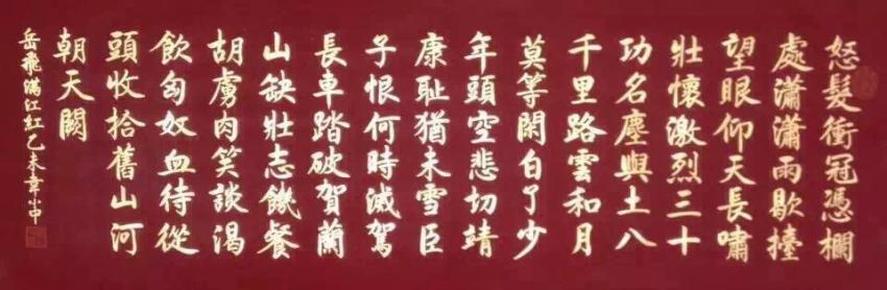 怒髮衝冠憑欄
處瀟瀟雨歇擡
望眼仰天長嘯
壯懷激烈三十
功名塵與土八
千里路雲和月
莫等閑白了少
年頭空悲切靖
康恥猶未雪臣
子恨何時滅駕
長車踏破賀蘭
山缺壯志饑餐
胡虜肉笑談渴
飲匈奴血待從
頭收拾舊山河
朝天闕
岳飛滿江紅乙未章小中